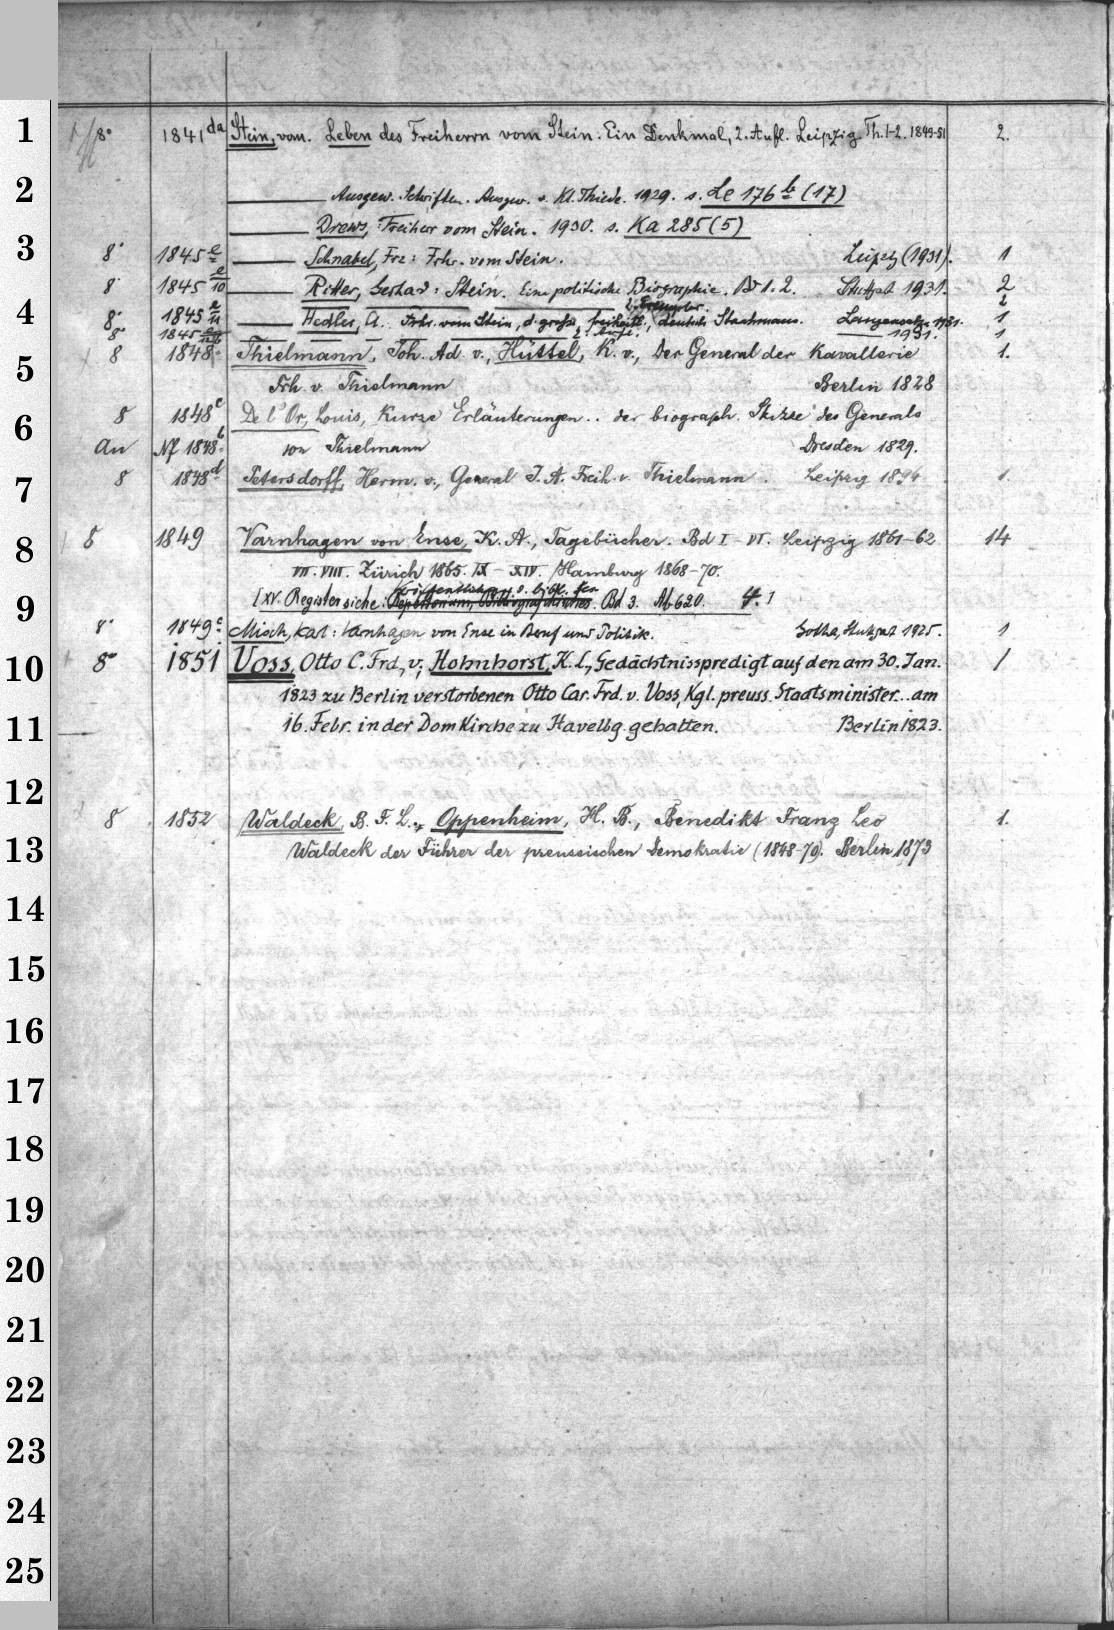 8° 1841 da Stein, vom. Leben des Freiherrn vom Stein. Ein Denkmal, 2. Aufl. Leipzig Th. 1-2. 1849-51 2.
Ausgew. Schriften. Ausgew. v. Kl. Thiede. 1929. s. Le 176 b (17)
Drews, Freiherr vom Stein. 1930. s. Ka 285 (5)
8° 1845 e Schnabel, Frz: Frhr. vom Stein. Leipzig (1931). 1
8° 1845 e/10 Ritter, Gerhard: Stein. Eine politische Biographie. Bd 1. 2. Stuttgat 1931. 2
2. Exemplar. 2
8° 1845 e/11 Hedler, A. Frhr. vom Stein, d. große freiheitl., deutsche Staatsmann. Langensalza 1931. 1
8° 1845 2. Aufl. 1931. 1
8 1848 Thielmann, Joh. Ad. v., Hüttel, K. v., Der General der Kavallerie 1.
Frh. v. Thielmann Berlin 1828
8 1848 c De l'Or, Louis, Kurze Erläuterungen .. der biograph. Skizze des Generals
an Nf 1848 b von Thielmann Dresden 1829.
8 1848 d Petersdorff, Herm. v., General J. A. Freih. v. Thielmann. Leipzig 1894 1.
8 1849 Varnhagen von Ense, K. A., Tagebücher. Bd I - VI. Leipzig 1861-62 14
VII. VIII. Zürich 1865. IX - XIV. Hamburg 1868-70.
[XV. Register siche: Bd 3. Ab 620. 4. 1
8° 1849 e Misch, Karl: Varnhagen von Ense in Beruf und Politik. Gotha, Stuttgat 1925. 1
8° 1851 Voss, Otto C. Frd, v., Hohnhorst, K. L., Gedächtnisspredigt auf den am 30. Jan. 1
1823 zu Berlin verstorbenen Otto Car. Frd. v. Voss, Kgl. preuss. Staatsminister .. am
16. Febr. in der Dom Kirche zu Havelbg. gehalten. Berlin 1823.
8 1852 Waldeck, B. F. L., Oppenheim, H. B., Benedikt Franz Leo 1.
Waldeck der Führer der preussischen Demokratie (1848-70). Berlin 1873
1
2
3
4
5
6
7
8
9
10
11
12
13
14
15
16
17
18
19
20
21
22
23
24
25